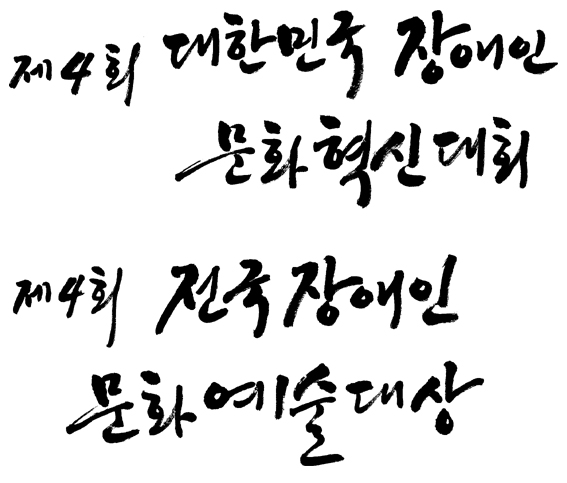 제4회 대한민국 장애인
문화혁신대회
제4회 전국장애인
문화예술대상